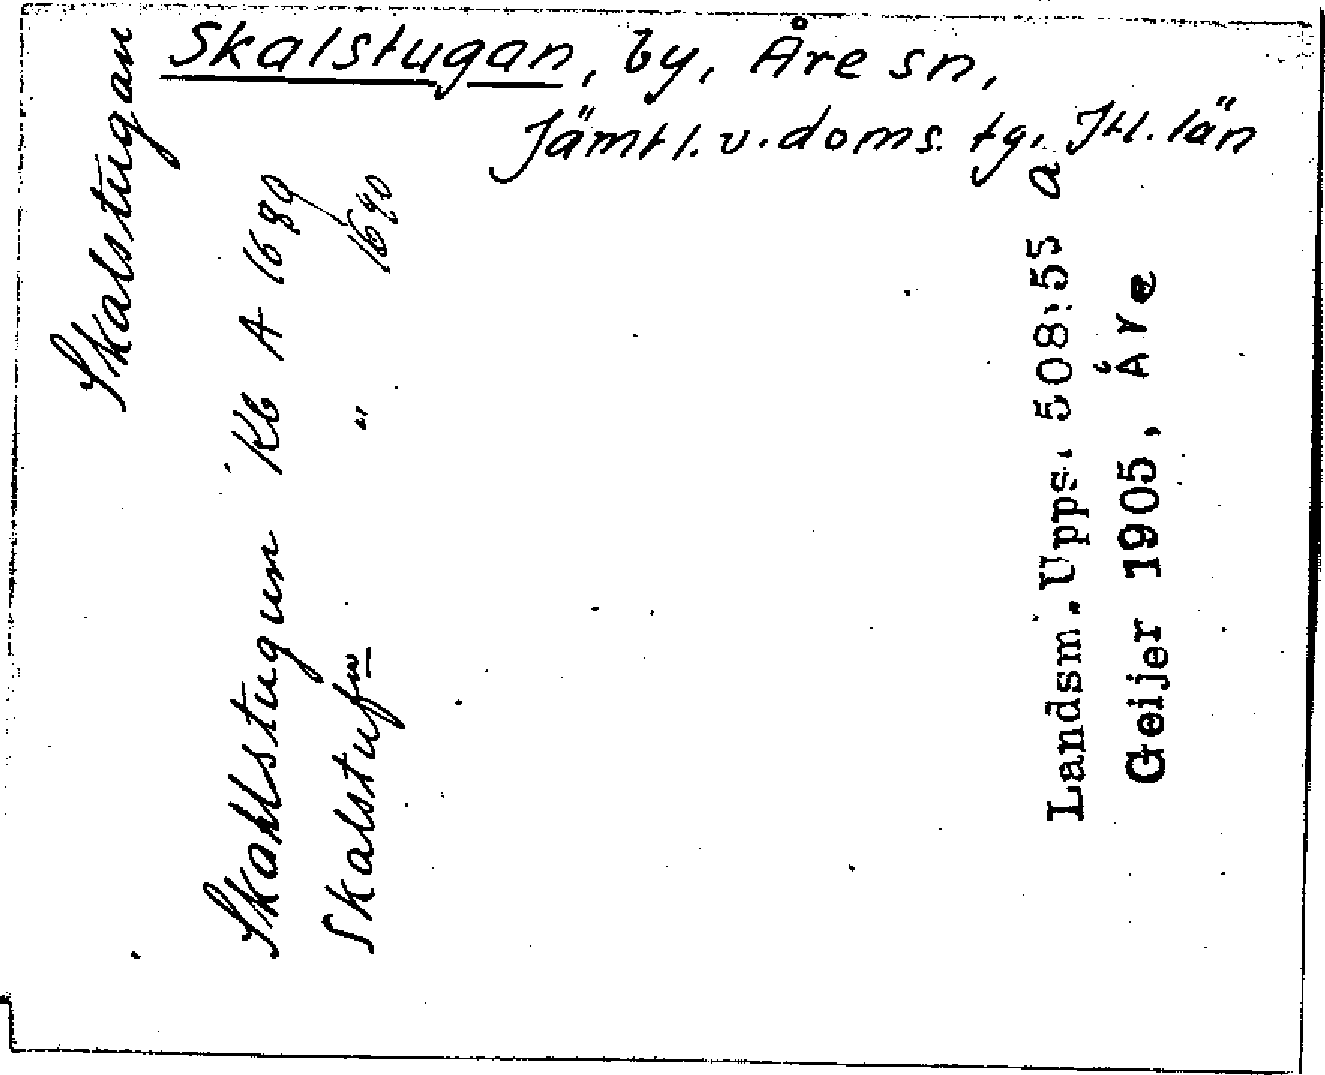 Skalstugan, by, Åre sn,
Jämtl. v. doms. tg. Jtl. län
Skalstugan
Skahlstugun Kb A 1689
Skalstufw " 1690
Landsm. Upps. 508:55 a
Geijer 1905, Åre